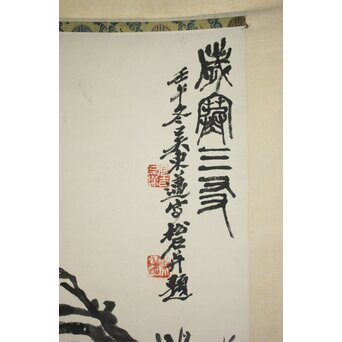 歲寒三友
壬午冬吳東邁寫松石并題